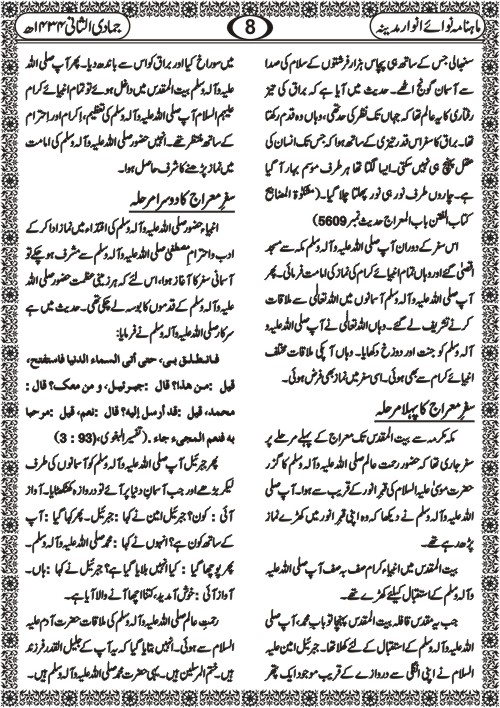 ماہنامہ نوائے انوارِ مدینہ
8
جمادی الثانی ۱۴۳۴ھ
سنبھالی جس کے ساتھ ہی پچاس ہزار فرشتوں کے سلام کی صدا
سے آسمان گونج اٹھے۔ حدیث میں آیا ہے کہ براق کی تیز
رفتاری کا یہ عالم تھا کہ جہاں تک نظر کی حد تھی، وہاں وہ قدم رکھتا
تھا۔ براق کا سفر اس قدر تیزی کے ساتھ ہوا کہ جس تک انسان کی
عقل پہنچ ہی نہیں سکتی۔ ایسا لگتا تھا ہر طرف موسم بہار آگیا
ہے۔ چاروں طرف نور ہی نور پھیلتا چلا گیا۔ (مشکوٰۃ المصابیح
کتاب الفتن باب المعراج حدیث نمبر 5609)
اس سفر کے دوران آپ صلی اللہ علیہ وآلہ وسلم مکہ سے مسجد
اقصیٰ گئے اور وہاں تمام انبیائے کرام کی نماز کی امامت فرمائی۔ پھر
آپ صلی اللہ علیہ وآلہ وسلم آسمانوں میں اللہ تعالیٰ سے ملاقات
کرنے تشریف لے گئے۔ وہاں اللہ تعالیٰ نے آپ صلی اللہ علیہ و
آلہ وسلم کو جنت اور دوزخ دکھایا۔ وہاں آپ کی ملاقات مختلف
انبیائے کرام سے بھی ہوئی۔ اسی سفر میں نماز بھی فرض ہوئی۔
سفر معراج کا پہلا مرحلہ
مکہ مکرمہ سے بیت المقدس تک معراج کے پہلے مرحلے پر
سفر جاری تھا کہ حضور رحمت عالم صلی اللہ علیہ وآلہ وسلم کا گزر
حضرت موسیٰ علیہ السلام کی قبر انور کے قریب سے ہوا۔ آپ صلی
اللہ علیہ وآلہ وسلم نے دیکھا کہ وہ اپنی قبر انور میں کھڑے نماز
پڑھ رہے تھے۔
بیت المقدس میں انبیاء کرام صف بہ صف آپ صلی اللہ علیہ
وآلہ وسلم کے استقبال کیلئے کھڑے تھے۔
جب یہ مقدس قافلہ بیت المقدس پہنچا تو باب محمد، آپ صلی
اللہ علیہ وآلہ وسلم کے استقبال کے لئے کھلا تھا۔ جبرئیل امین علیہ
السلام نے اپنی انگلی سے دروازے کے قریب موجود ایک پتھر
میں سوراخ کیا اور براق کو اس سے باندھ دیا۔ پھر آپ صلی اللہ
علیہ وآلہ وسلم بیت المقدس میں داخل ہوئے تو تمام انبیائے کرام
علیہم السلام آپ صلی اللہ علیہ وآلہ وسلم کی تعظیم، اکرام اور احترام
کے ساتھ منتظر تھے۔ انہیں حضور صلی اللہ علیہ وآلہ وسلم کی امامت
میں نماز پڑھنے کا شرف حاصل ہوا۔
سفر معراج کا دوسرا مرحلہ
انبیاء حضور صلی اللہ علیہ وآلہ وسلم کی اقتداء میں نماز ادا کر کے
ادب و احترام مصطفیٰ صلی اللہ علیہ وآلہ وسلم سے مشرف ہو چکے تو
آسمانی سفر کا آغاز ہوا، اس لئے کہ ہر زمینی عظمت حضور صلی اللہ
علیہ وآلہ وسلم کے قدموں کا بوسہ لے چکی تھی۔ حدیث میں ہے
سرکار صلی اللہ علیہ وآلہ وسلم نے فرمایا:
فانطلق بی، حتی أتی السماء الدنیا فاستفتح،
قیل :من هذا؟ قال :جبرئیل، و من معک؟ قال :
محمد، قیل :قد أرسل إلیه؟ قال :نعم، قیل :مرحبا
به فنعم المجیء جاء .(تفسیر البغوی، (93 : 3)
پھر جبرئیل آپ صلی اللہ علیہ وآلہ وسلم کو آسمانوں کی طرف
لیکر بڑھے اور جب آسمانِ دنیا پر آئے تو دروازہ کھٹکھٹایا۔ آواز
آئی : کون؟ جبرئیل امین نے کہا : جبرئیل۔ پھر کہا گیا : آپ
کے ساتھ کون ہے؟ انہوں نے کہا : محمد صلی اللہ علیہ وآلہ وسلم۔
پھر پوچھا گیا : کیا انہیں بلایا گیا ہے؟ جبرئیل نے کہا : ہاں۔
آواز آئی : خوش آمدید، کتنا اچھا آنے والا آیا ہے۔
رحمتِ عالم صلی اللہ علیہ وآلہ وسلم کی ملاقات حضرت آدم علیہ
السلام سے ہوئی۔ انہیں بتایا گیا کہ یہ آپ کے جلیل القدر فرزند
ہیں۔ ختم المرسلین ہیں۔ یہی حضرت محمد صلی اللہ علیہ وآلہ وسلم ہیں۔